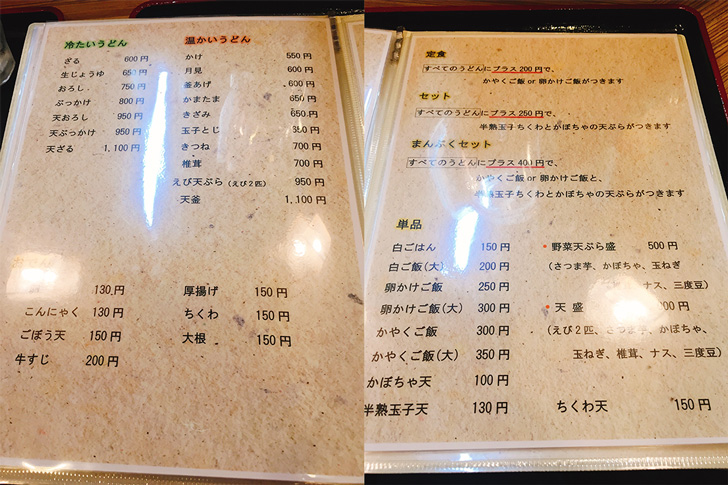 冷たいうどん
ざる 600円
生じょうゆ 650円
おろし 750円
ぶっかけ 800円
天おろし 950円
天ぶっかけ 950円
天ざる 1,100円
温かいうどん
かけ 550円
月見 600円
釜あげ 600円
かまたま 650円
きざみ 650円
玉子とじ 円
きつね 700円
椎茸 700円
えび天ぷら(えび2匹) 950円
天釜 1,100円
130円
こんにゃく 130円
ごぼう天 150円
牛すじ 200円
厚揚げ 150円
ちくわ 150円
大根 150円
定食
すべてのうどんにプラス200円で、
かやくご飯 or 卵かけご飯がつきます
セット
すべてのうどんにプラス250円で、
半熟玉子ちくわとかぼちゃの天ぷらがつきます
まんぷくセット
すべてのうどんにプラス400円で、
かやくご飯 or 卵かけご飯と、
半熟玉子ちくわとかぼちゃの天ぷらがつきます
単品
白ごはん 150円
白ご飯(大) 200円
卵かけご飯 250円
卵かけご飯(大) 300円
かやくご飯 300円
かやくご飯(大) 350円
かぼちゃ天 100円
半熟玉子天 130円
野菜天ぷら盛 500円
(さつま芋、かぼちゃ、玉ねぎ
ナス、三度豆)
天盛 00円
(えび2匹、さつま芋、かぼちゃ、
玉ねぎ、椎茸、ナス、三度豆)
ちくわ天 150円